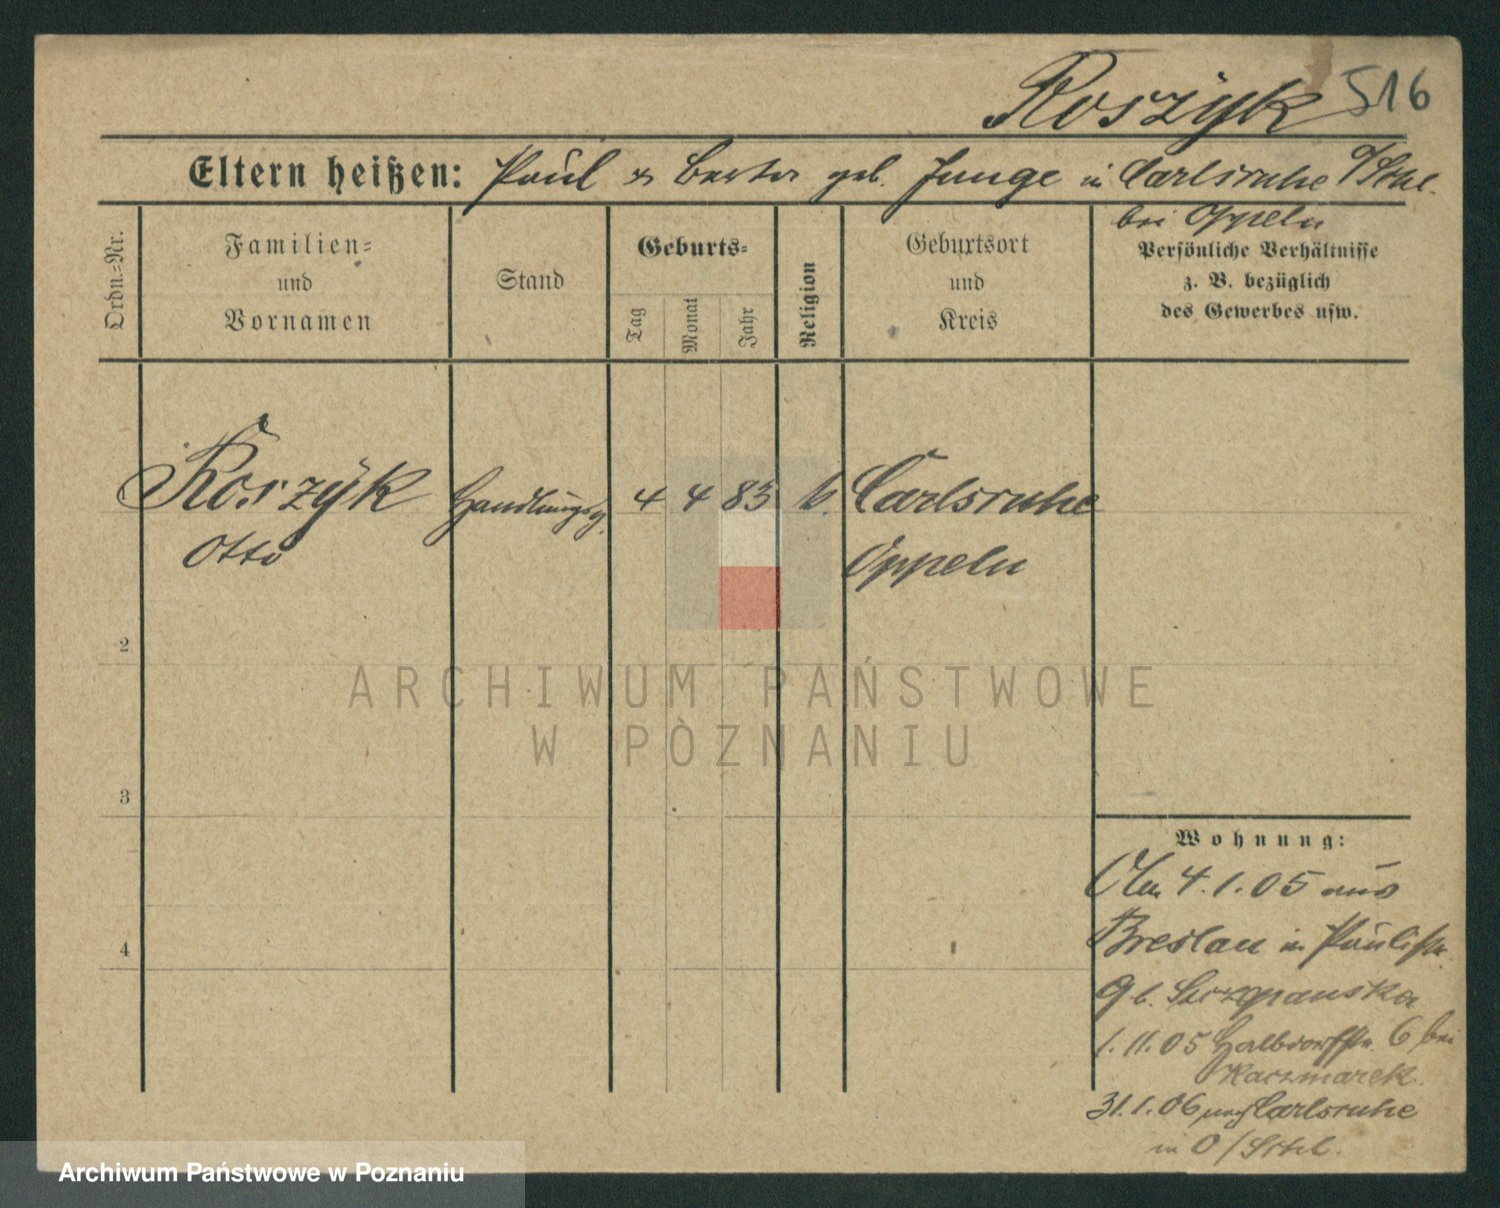 Roszyk 516
Eltern heißen: Paul u. Berta geb. Junge in Carlsruhe O/Schl.
bei Oppeln
Ordn.=Nr.
Familien=
und
Vornamen
Stand
Geburts=
Tag
Monat
Jahr
Religion
Geburtsort
und
Kreis
Persönliche Verhältnisse
z. B. bezüglich
des Gewerbes usw.
Roszyk Handlungsg. 4 4 83 k. Carlsruhe
Otto Oppeln
2
3
4
Wohnung:
Am 4.1.05 aus
Breslau in Paulistr.
9 b. Szczepanska
1.11.05 Halbdorfstr. 6 bei
Kaczmarek.
31.1.06 nach Carlsruhe
in O/Schl.
ARCHIWUM PAŃSTWOWE
W POZNANIU
Archiwum Państwowe w Poznaniu